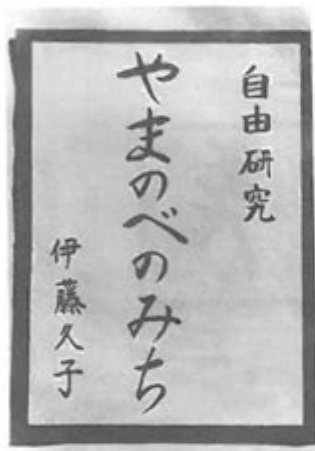 自由研究
やまのべのみち
伊藤久子